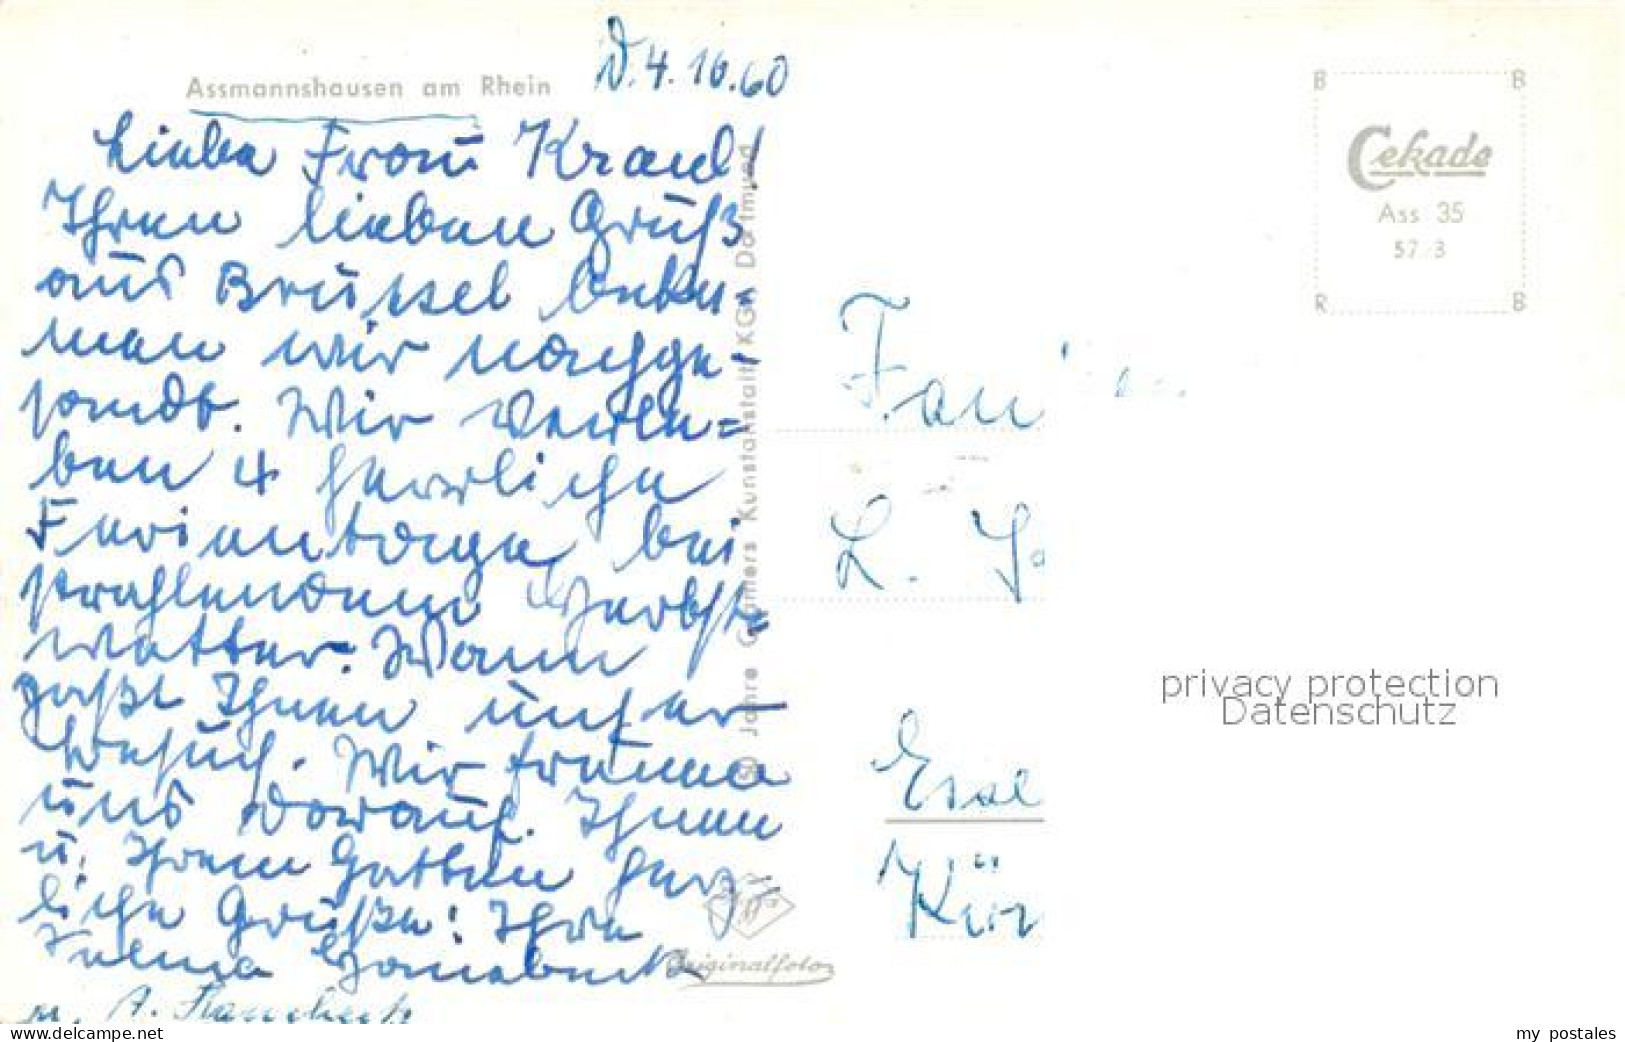 Assmannshausen am Rhein
D. 4. 10. 60
Liebe Frau Kraul!
Ihren lieben Gruß
aus Brüssel beka-
men wir nachge-
sandt. Wir verle=
ben 4 herrliche
Ferientage bei
strahlendem Herbst=
wetter. Wann
paßt Ihnen unser
Besuch. Wir freuen
uns darauf. Ihnen
u. Ihrem Gatten herz
liche Grüße! Ihre
u. A.
50 Jahre Cramers Kunstanstalt KG. Dortmund
Originalfoto
B B
Cekade
Ass 35
57 3
R B
Fan
L.
Essel
Kür
privacy protection
Datenschutz
www.delcampe.net
my_postales